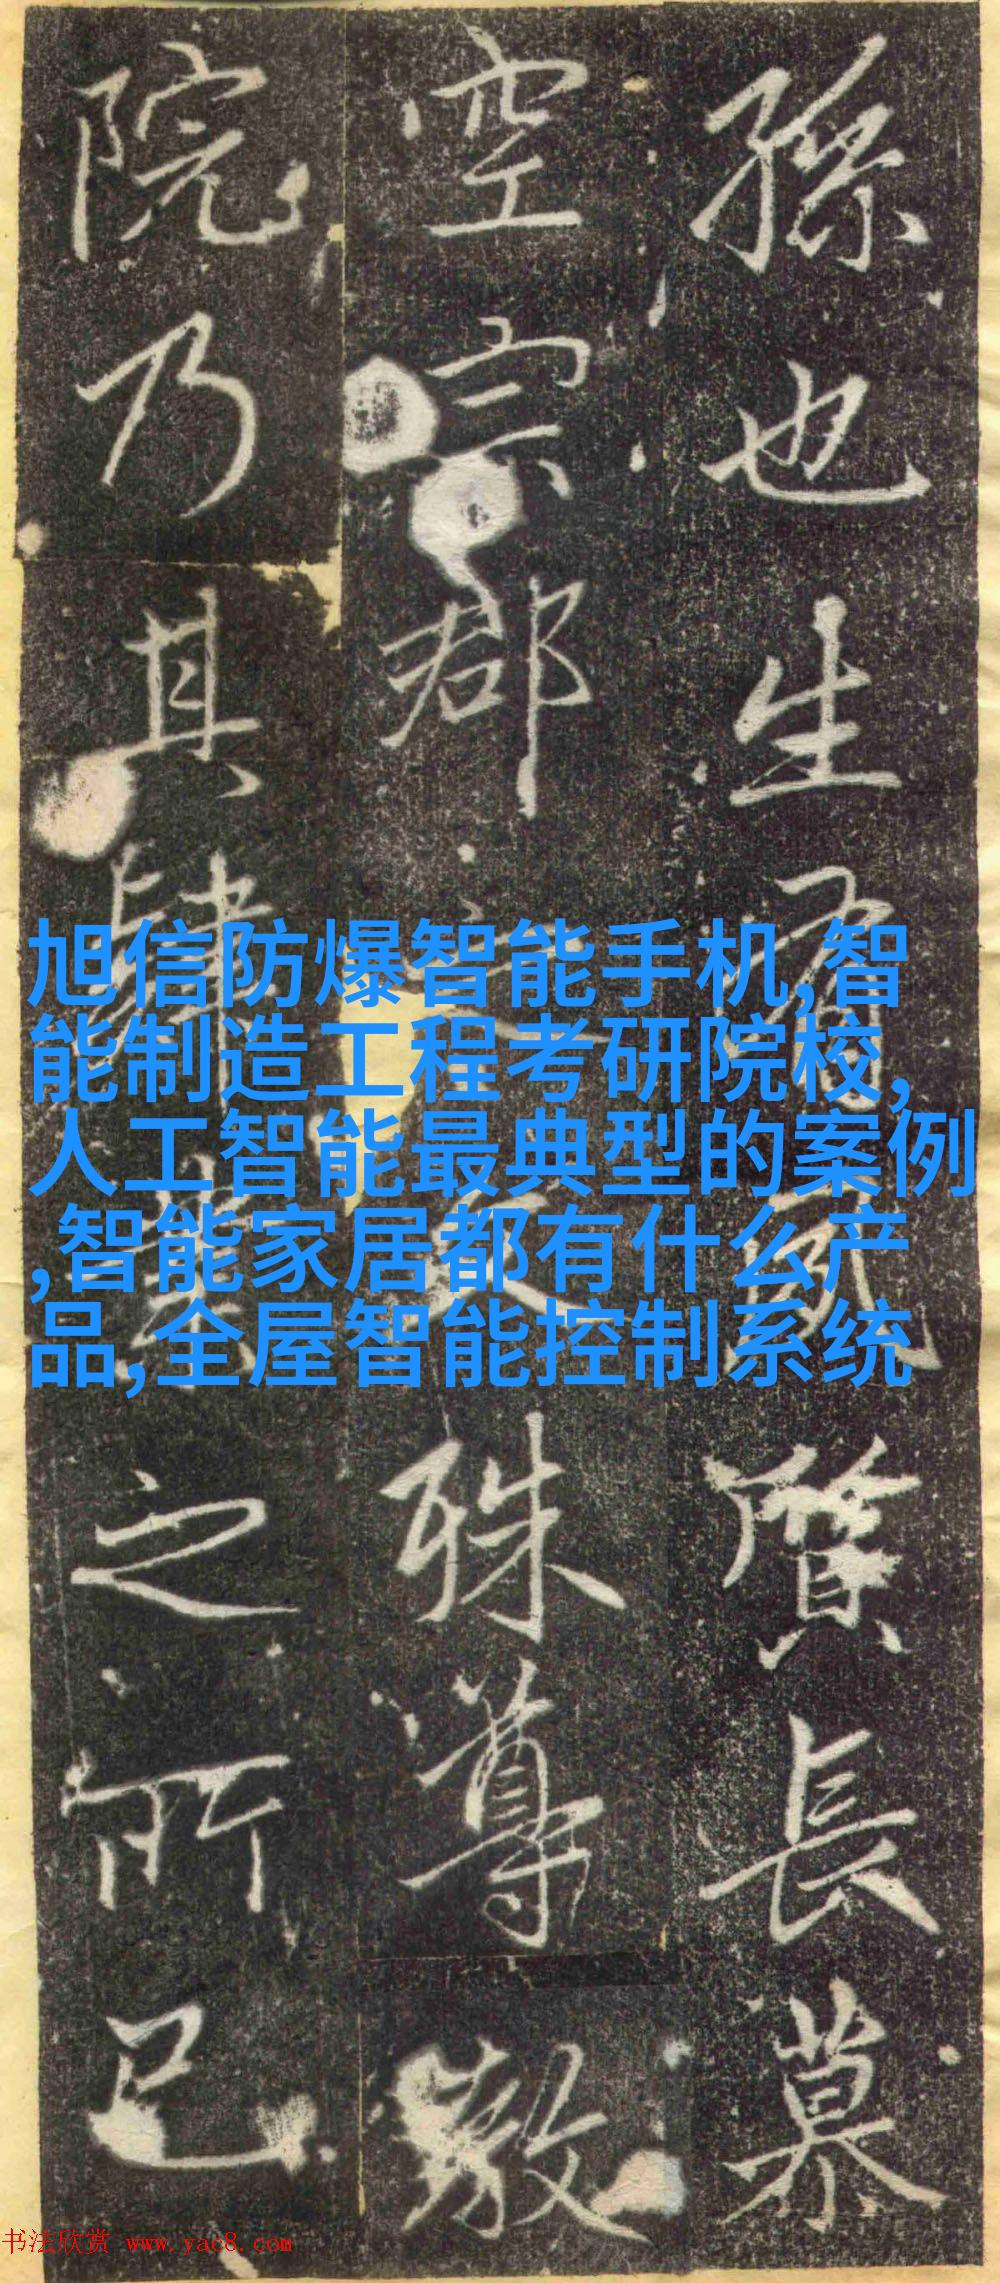 孫也生有質長慕
空宗郡之殊尊敬
院乃其肆業之所已
旭信防爆智能手机,智
能制造工程考研院校,
人工智能最典型的案例
,智能家居都有什么产
品,全屋智能控制系统
书法欣赏 www.yac8.com